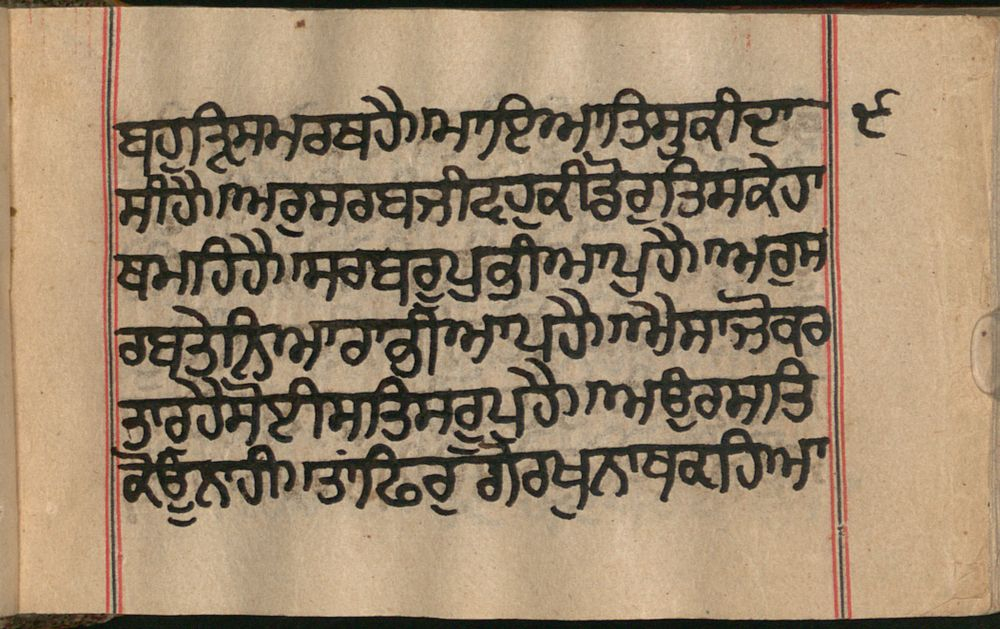 ਬਹੁਤੁਸਮਰਥਹੈ॥ਮਾਇਆਤਿਸੁਕੀਦਾ
ਸੀਹੈ॥ਅਰੁਸਰਬਜੀਵਹੁਕੀਡੋਰੁਤਿਸਕੇਹਾ
ਥਮਹਿਹੈ॥ਸਰਬਰੂਪੁਭੀਆਪੁਹੈ॥ਅਰੁਸ
ਰਬਤੇਨਿਆਰਾਭੀਆਪਹੈ॥ਐਸਾਜੋਕਰ
ਤਾਰੁਹੈਸੋਈਸਤਿਸਰੂਪੁਹੈ॥ਅਉਰਸਤਿ
ਕੋਊਨਾਹੀ॥ਤਾਂਫਿਰੁ ਗੋਰਖੁਨਾਥਕਹਿਆ
੯